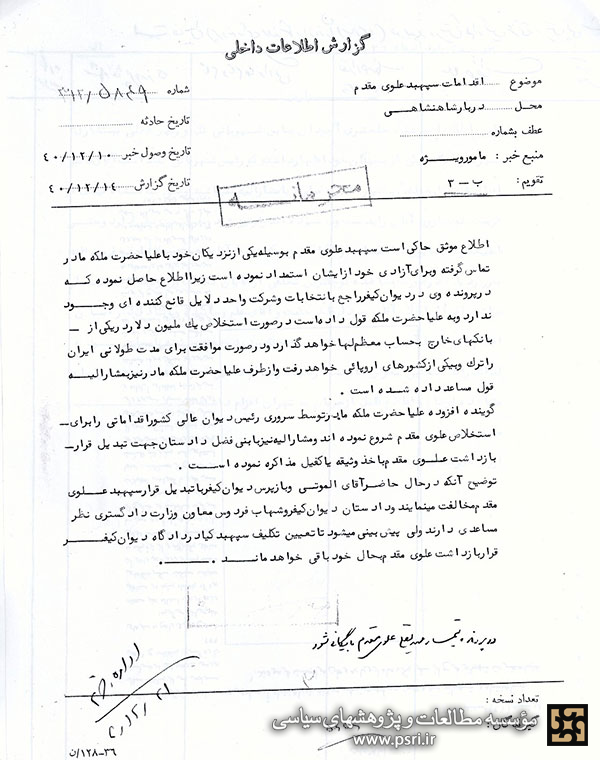 گزارش اطلاعات داخلی
موضوع ..... اقدامات سپهبد علوی مقدم
شماره ..... ۵۸۴۹/
محل ..... دربار شاهنشاهی
تاریخ حادثه .....
عطف بشماره .....
تاریخ وصول خبر ۴۰/۱۲/۱۰
منبع خبر : مامور ویژه
تاریخ گزارش ۴۰/۱۲/۱۴
تقویم : ب - ۳
محرمانه
اطلاع موثق حاکی است سپهبد علوی مقدم بوسیله یکی از نزدیکان خود با علیاحضرت ملکه مادر
تماس گرفته و برای آزادی خود از ایشان استمداد نموده است زیرا اطلاع حاصل نموده که
در پرونده وی در دیوان کیفر راجع بانتخابات و شرکت واحد دلایل قانع کننده ای وجود
ندارد و به علیاحضرت ملکه قول داده است در صورت استخلاص یک ملیون دلار در یکی از -
بانکهای خارج بحساب معظم لها خواهد گذارد و در صورت موافقت برای مدت طولانی ایران
را ترک و بیکی از کشورهای اروپائی خواهد رفت و از طرف علیاحضرت ملکه مادر نیز بمشارالیه
قول مساعد داده شده است .
گوینده افزوده علیاحضرت ملکه مادر توسط سروری رئیس دیوان عالی کشور اقداماتی را برای -
استخلاص علوی مقدم شروع نموده اند و مشارالیه نیز با بنی فضل دادستان جهت تبدیل قرار -
بازداشت علوی مقدم باخذ وثیقه یا کفیل مذاکره نموده است .
توضیح آنکه در حال حاضر آقای الموتی و بازپرس دیوان کیفر با تبدیل قرار سپهبد علوی
مقدم مخالفت مینمایند و دادستان دیوان کیفر و شهاب فردوس معاون وزارت دادگستری نظر
مساعدی دارند ولی پیش بینی میشود تا تعیین تکلیف سپهبد کیا در دادگاه دیوان کیفر
قرار بازداشت علوی مقدم بحال خود باقی خواهد ماند .
در پرونده تیمسار علوی مقدم بایگانی شود
اداره
۲۱/۱۲/
تعداد نسخه :
موسسه مطالعات و پژوهشهای سیاسی
www.psri.ir
۳۶-۱۲۸/ن